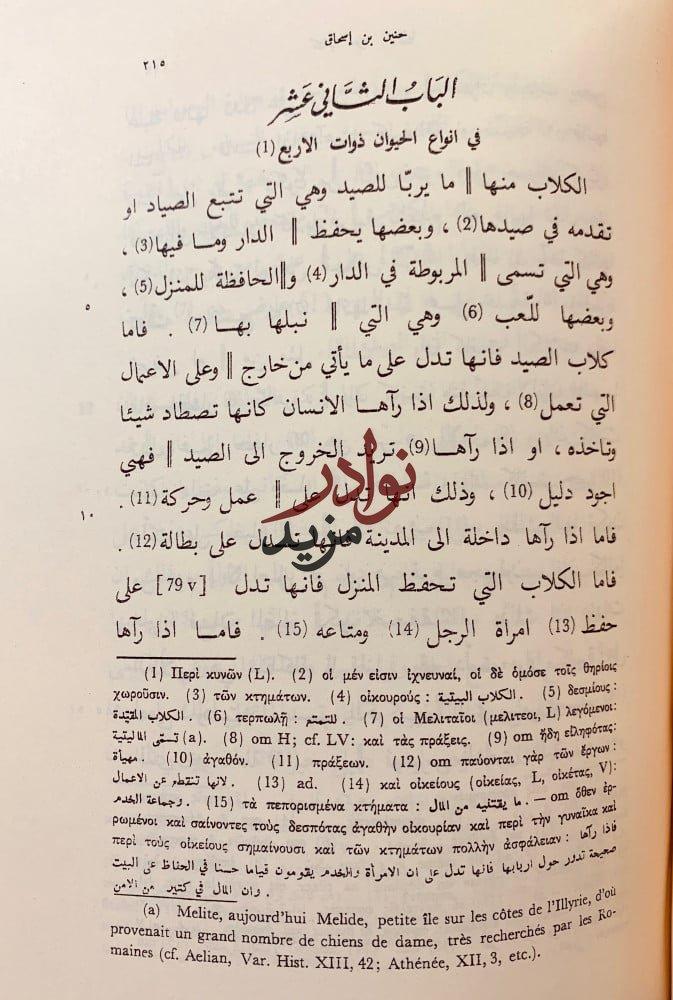 حنين بن إسحاق
٢١٥
الباب الثاني عشر
في انواع الحيوان ذوات الاربع (1)
الكلاب منها ‖ ما يربّا للصيد وهي التي تتبع الصياد او
تقدمه في صيدها (2) ، وبعضها يحفظ ‖ الدار ومـا فيها (3) ،
وهي التي تسمى ‖ المربوطة في الدار (4) و‖الحافظة للمنزل (5) ،
٥
وبعضها للّعب (6) وهي التي ‖ نبلها بهـا (7) . فاما
كلاب الصيد فانهـا تدل على ما يأتي من خارج ‖ وعلى الاعمال
التي تعمل (8) ، ولذلك اذا رآهـا الانسان كانهـا تصطاد شيئا
وتاخذه ، او اذا رآهـا (9) تريد الخروج الى الصيد ‖ فهي
اجود دليل (10) ، وذلك انها تدل على ‖ عمل وحركة (11) .
١٠
فاما اذا رآها داخلة الى المدينة فانها تدل على بطالة (12) .
فاما الكلاب التي تحفظ المنزل فانها تدل [79 v] على
حفظ (13) امراة الرجل (14) ومتاعه (15) . فامـا اذا رآها
(1) Περὶ κυνῶν (L). (2) οἱ μέν εἰσιν ἰχνευταί, οἱ δὲ ὁμόσε τοῖς θηρίοις
χωροῦσιν. (3) τῶν κτημάτων. (4) οἰκουρούς : الكلاب البيتية. (5) δεσμίους :
الكلاب المقيّدة. (6) τερπωλῇ : للتمتع. (7) οἱ Μελιταῖοι (μελιτεοι, L) λεγόμενοι:
تسمّى الماليتية (a). (8) om H; cf. LV: καὶ τὰς πράξεις. (9) om ἤδη εἰληφότας:
مهيأة. (10) ἀγαθόν. (11) πράξεων. (12) om παύονται γὰρ τῶν ἔργων:
لانها تنقطع عن الاعمال. (13) ad. (14) καὶ οἰκείους (οἰκείας, L, οἰκέτας, V):
وجماعة الخدم. (15) τὰ πεπορισμένα κτήματα : ما يقتنيه من المال. — om ὅθεν ἐρ-
ρωμένοι καὶ σαίνοντες τοὺς δεσπότας ἀγαθὴν οἰκουρίαν καὶ περὶ τὴν γυναῖκα καὶ
περὶ τοὺς οἰκείους σημαίνουσι καὶ τῶν κτημάτων πολλὴν ἀσφάλειαν : فاذا رآها
صحيحة تدور حول اربابها فانها تدل على ان الامرأة والخدم يقومون قياما حسنا في الحفاظ على البيت
وان المال في كثير من الامن.
(a) Melite, aujourd'hui Melide, petite île sur les côtes de l'Illyrie, d'où
provenait un grand nombre de chiens de dame, très recherchés par les Ro-
maines (cf. Aelian, Var. Hist. XIII, 42; Athénée, XII, 3, etc.).
نوادر
مزيد